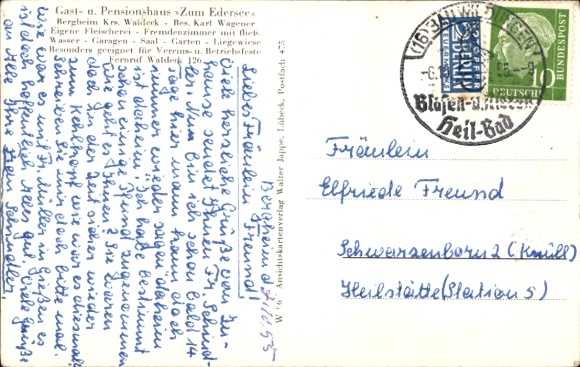 Gast- u. Pensionshaus »Zum Edersee«
Bergheim Krs. Waldeck - Bes. Karl Wagener
Eigene Fleischerei - Fremdenzimmer mit fließ.
Wasser - Garagen - Saal - Garten - Liegewiese
Besonders geeignet für Vereins- u. Betriebsfeste
Fernruf Waldeck 126
Bergheim d. 7.10.55
Liebes Fräulein Freund!
Viele herzliche Grüße von zu-
hause sendet Ihnen Fr. Schind-
ler. Nun bin ich schon bald 14
Tage hier man kann doch
immer wieder sagen daheim
ist daheim. Ich habe bestimmt
schon einige Pfund zugenommen
Wie geht es Ihnen? Sie waren
doch in der Zeit sicher wieder
zum Kehlkopf wie war es diesmal?
Schreiben Sie mir doch bitte mal.
Wie war es mit Fr. Müller in Gießen es
ist doch hoffentlich Alles gut. Viele Grüße
an Alle Ihre Frau Schindler.
W / 6 Ansichtskartenverlag Walter Jappe, Lübeck, Postfach 475
(16) BAD WILDUNGEN
Blasen- u. Nieren
Heil-Bad
NOTOPFER
2 BERLIN
STEUERMARKE
10
DEUTSCHE
BUNDESPOST
Fräulein
Elfriede Freund
Schwarzenborn 2 (Knüll)
Heilstätte (Station 5)